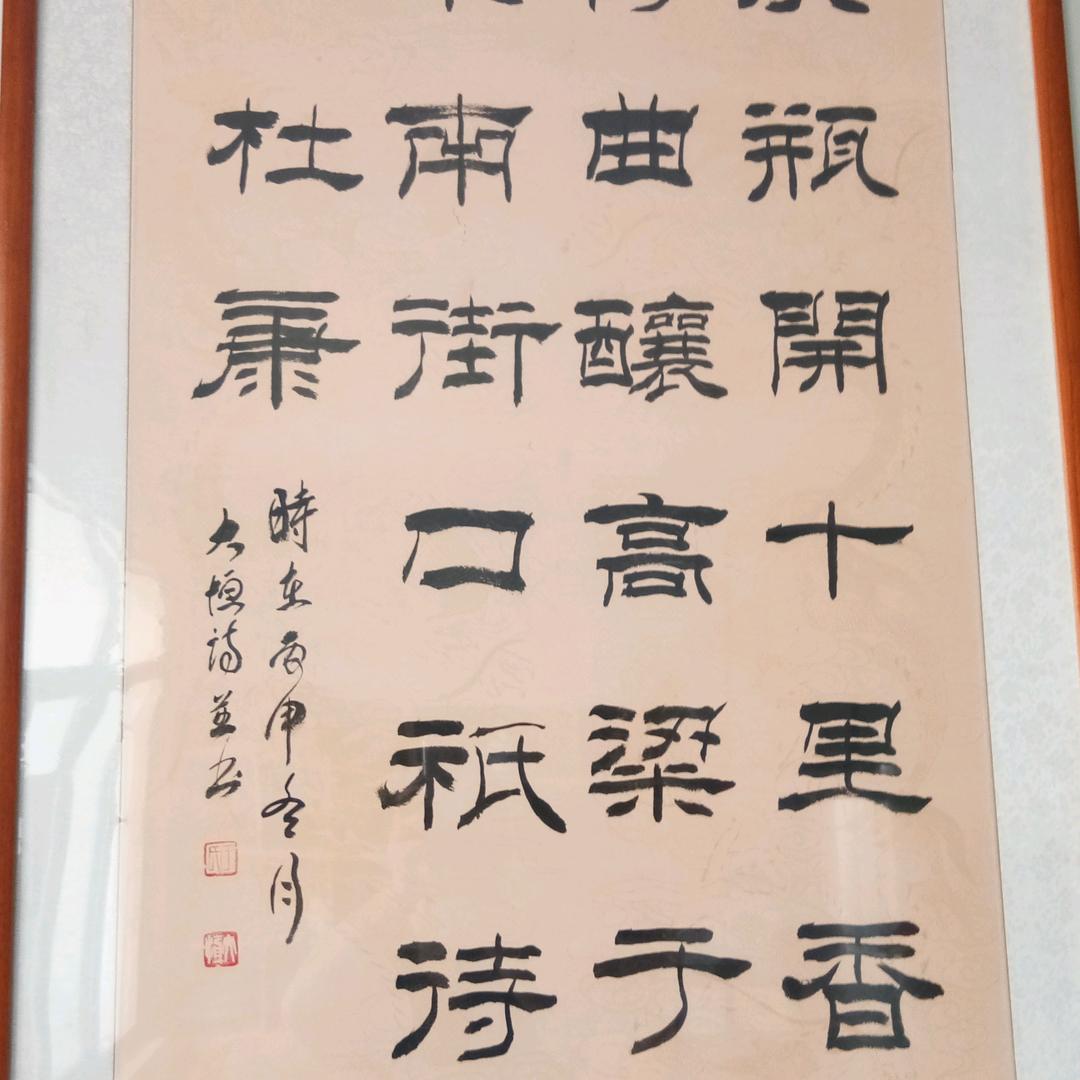 瓶開十里香
曲釀高粱于
南街口祇待
杜康
時在丙申冬月
大恒詩並书